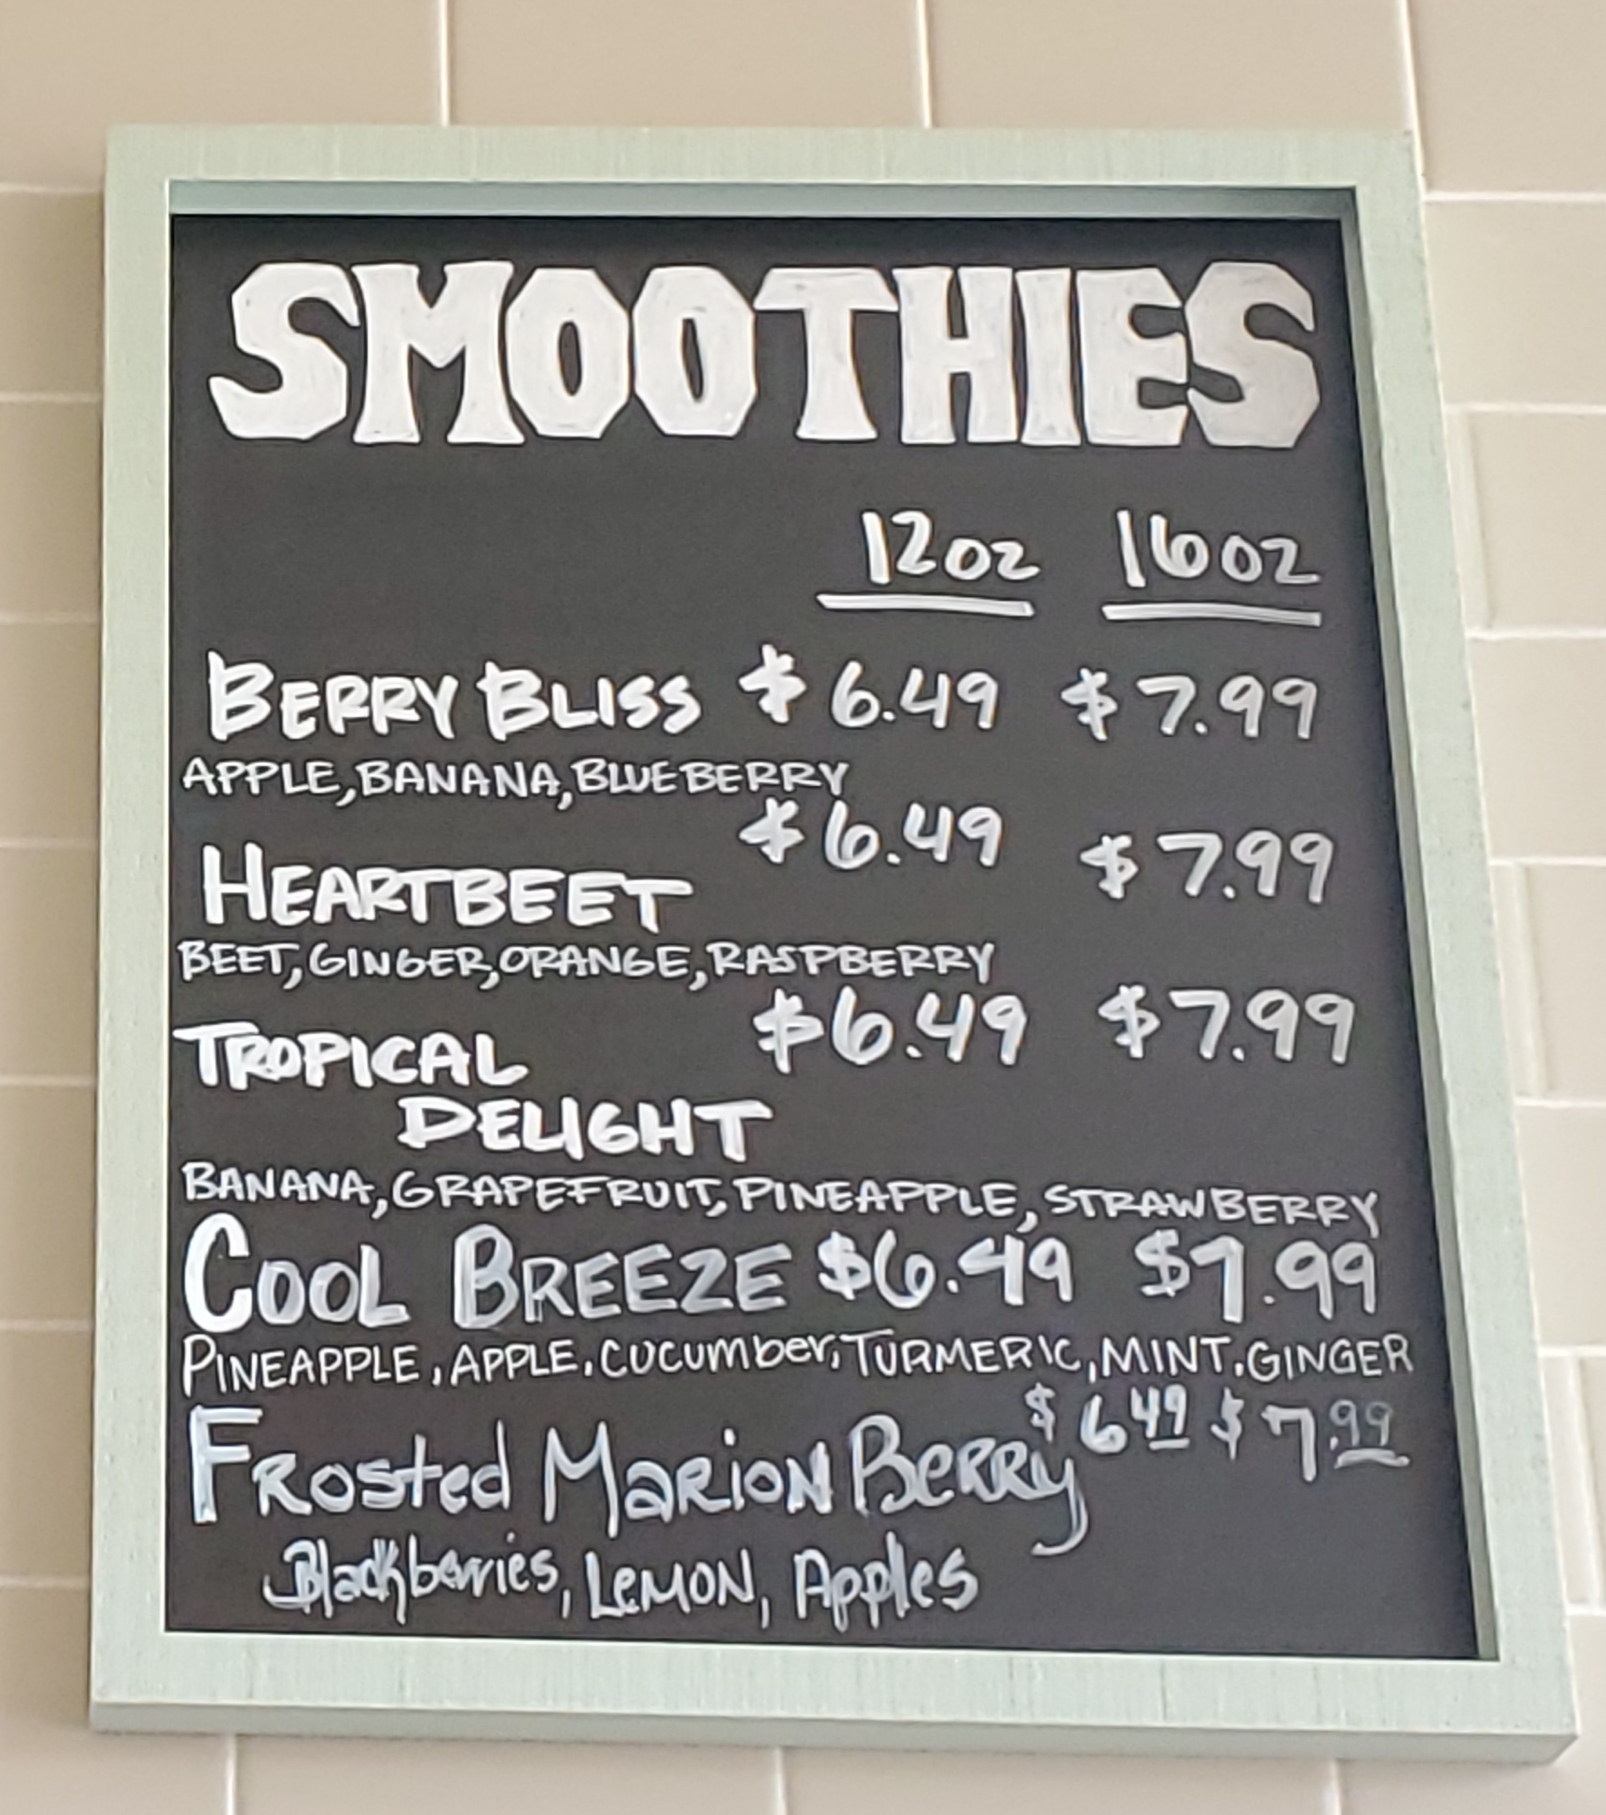 SMOOTHIES
12oz 16oz
BERRY BLISS $6.49 $7.99
APPLE, BANANA, BLUEBERRY
HEARTBEET $6.49 $7.99
BEET, GINGER, ORANGE, RASPBERRY
TROPICAL $6.49 $7.99
DELIGHT
BANANA, GRAPEFRUIT, PINEAPPLE, STRAWBERRY
COOL BREEZE $6.49 $7.99
PINEAPPLE, APPLE, CUCUMber, TURMERIC, MINT, GINGER
FRosted MARiON BeRRy $6.49 $7.99
Blackberries, LeMON, Apples